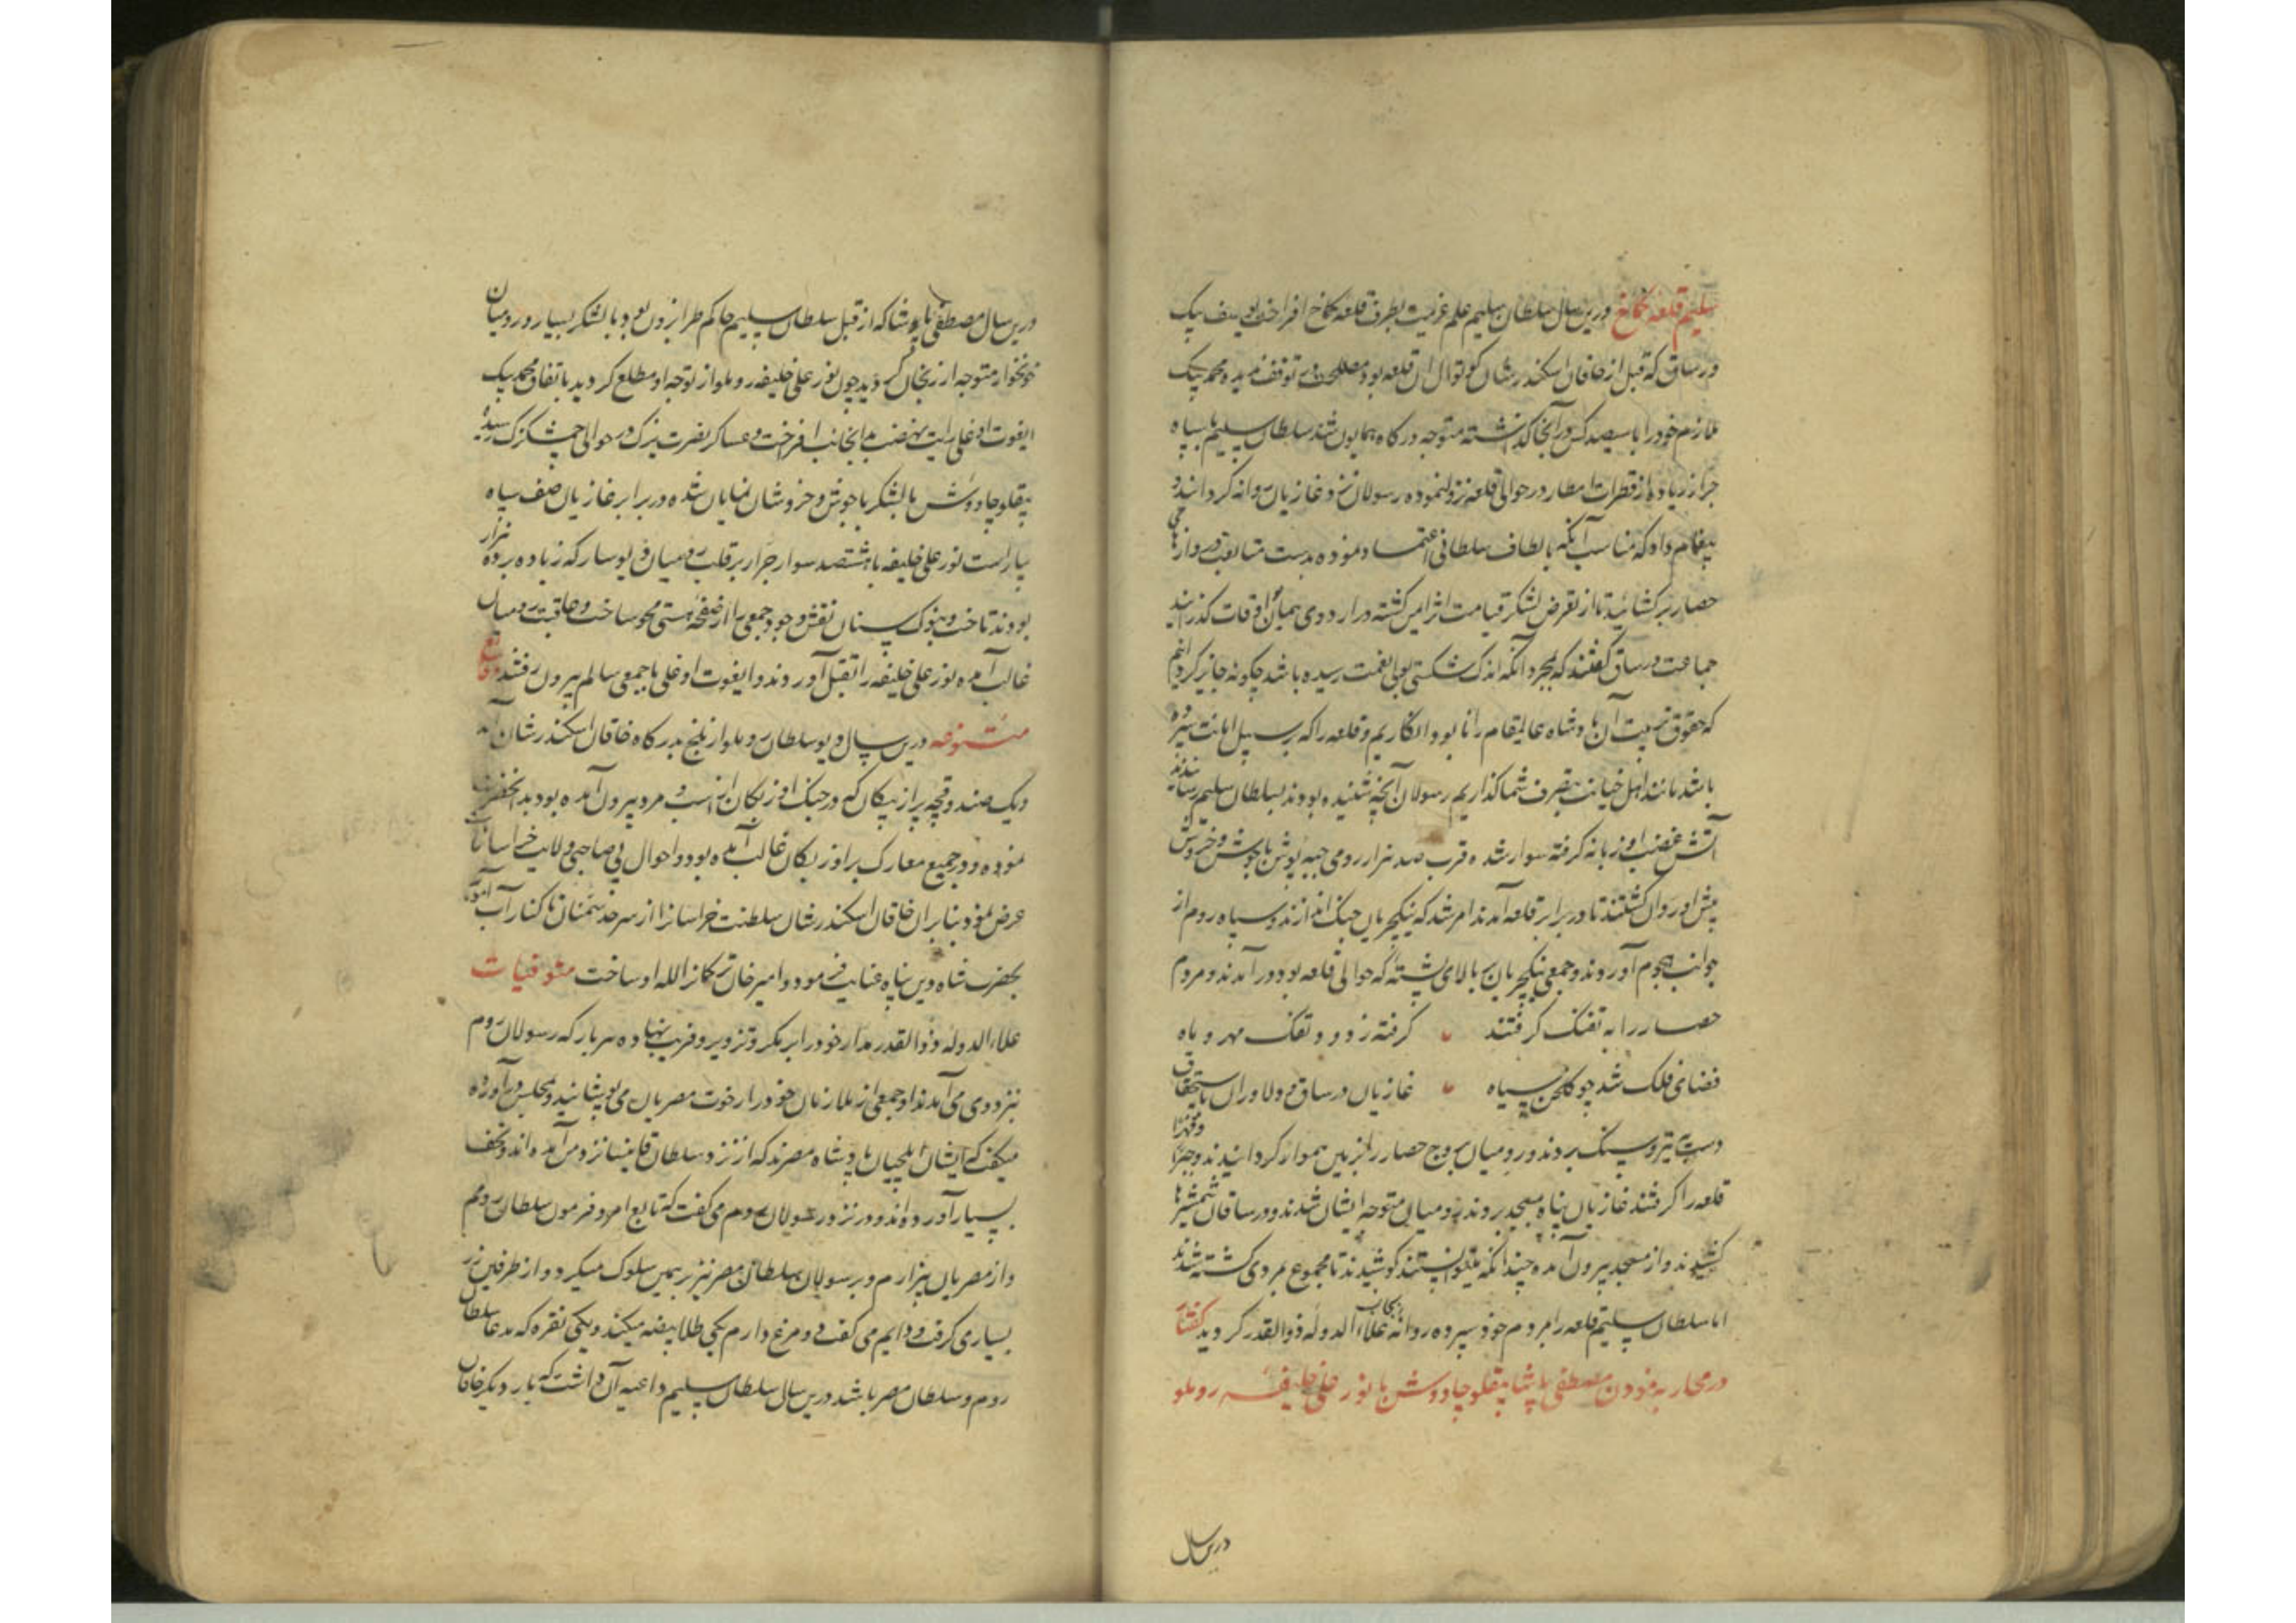 سلیم قلعه کماخ درین سال سلطان سلیم علم عزیمت بطرف قلعه کماخ افراخت یوسف بیک
ورساق که قبل از خاقان اسکندر شان کوتوال آن قلعه بود مصلحت در توقف ندید و محمد بیک
ملازم خود را با سیصد کس در آنجا گذاشته متوجه درگاه همایون شد سلطان سلیم با سپاه
جرار زیاده از قطرات امطار در حوالی قلعه نزول نموده رسولان نزد غازیان روانه کردانید و
پیغام داد که مناسب آنکه بالطاف سلطانی اعتماد نموده بدست متابعت دروازهای
حصار بر کشائید تا از تعرض لشکر قیامت اثر ایمن کشته در اردوی همیان اوقات گذرانید
جماعت ورساق گفتند که بمجرد آنکه اندک شکستی بولی نعمت رسیده باشد چگونه جایز کردانیم
که حقوق تربیت آن پادشاه عالیمقام را نابود انگاریم و قلعه را که بر سبیل امانت سپرده
باشد مانند اهل خیانت بتصرف شما گذاریم رسولان آنچه شنیده بودند بسلطان سلیم رسانیدند
آتش غضب او زبانه کرفته سوار شد و قرب صد هزار رومی جبه پوش با جوش و خروش
پیش او روان کشتند تا در برابر قلعه آمدند امر شد که ینکچریان جنک اندازند و سپاه روم از
جوانب هجوم آوردند و جمعی ینکچریان بر بالای پشته که حوالی قلعه بود در آمدند و مردم
حصار را به تفنک کرفتند گرفته ز دود تفک مهر و ماه
فضای فلک شد چو گلخن سیاه غازیان ورساق و دلاوران باستحقاق
دست به تیر و سنک بردند و رومیان بروج حصار را بزمین هموار کردانیدند و جبرا و قهرا
قلعه را کرفتند غازیان پناه بمسجد بردند رومیان متوجه ایشان شدند و ورساقان شمشیرها
کشیدند و از مسجد بیرون آمده چندانکه میتوانستند کوشیدند تا مجموع بمردی کشته شدند
اما سلطان سلیم قلعه را بمردم خود سپرده روانه بجانب علاء الدوله ذو القدر کردید کفتار
در محاربه نمودن مصطفی پاشا بیقلو چاووش با نور علی خلیفه روملو
درین سال
درین سال مصطفی پاشا که از قبل سلطان سلیم حاکم طرابزون بود با لشکر بسیار و رومیان
خونخوار متوجه ارزنجان کردید چون نور علی خلیفه روملو از توجه او مطلع کردید باتفاق محمد بیک
ایغوت اوغلی رایت نهضت بدانجانب افراخت و عساکر نصرت یزک در حوالی چمشکزک رسیده
بیقلو چاووش با لشکر با جوش و خروش نمایان شده در برابر غازیان صف سپاه
بیاراست نور علی خلیفه با هشتصد سوار جرار بر قلب رومیان که زیاده بر ده هزار
بودند تاخت و بنوک سنان نقش وجود جمعی را از صفحه هستی محو ساخت و عاقبت رومیان
غالب آمده نور علی خلیفه را بقتل آوردند و ایغوت اوغلی با جمعی سالم بیرون رفتند وقایع
متنوعه درین سال دیو سلطان روملو از بلخ بدرگاه خاقان اسکندر شان آمد
و یک صندوقچه پر از پیکان که در جنک اوزبکان از اسب و مرد بیرون آمده بود بد انحضرت
نموده و در جمیع معارک بر اوزبکان غالب آمده بود و احوال بی صاحبی ولایت خراسان
عرض نمود بنابر ان خاقان اسکندر شان سلطنت خراسان را از سرحد سمنان تا کنار آب آمویه
بحضرت شاه دین پناه عنایت فرمود و امیر خان ترکمان را لله او ساخت متوفیات
علاء الدوله ذوالقدر مدار خود را بر مکر و تزویر و فریب نهاده هر بار که رسولان روم
نزد وی می آمدند او جمعی از ملازمان خود را رخوت مصریان می پوشانید و بمجلس در آورده
میکفت که ایشان ایلچیان پادشاه مصرند که از نزد سلطان قانیسا نزد من آمده اند و تحف
بسیار آورده اند و در نزد رسولان روم می گفت که تابع امر و فرمون سلطان رومم
و از مصریان بیزارم و بر رسولان سلطان مصر نیز بر همین سلوک میکرد و از طرفین زر
بسیاری کرفت و دایم می کفت دو مرغ دارم یکی طلا بیضه میکند و یکی نقره که مدعا سلطان
روم و سلطان مصر باشد درین سال سلطان سلیم داعیه آن داشت که بار دیگر خاقان